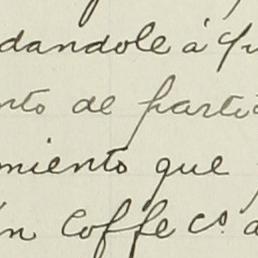 dandole á qu
nto de parti
miento que
in Coffe Cº. a